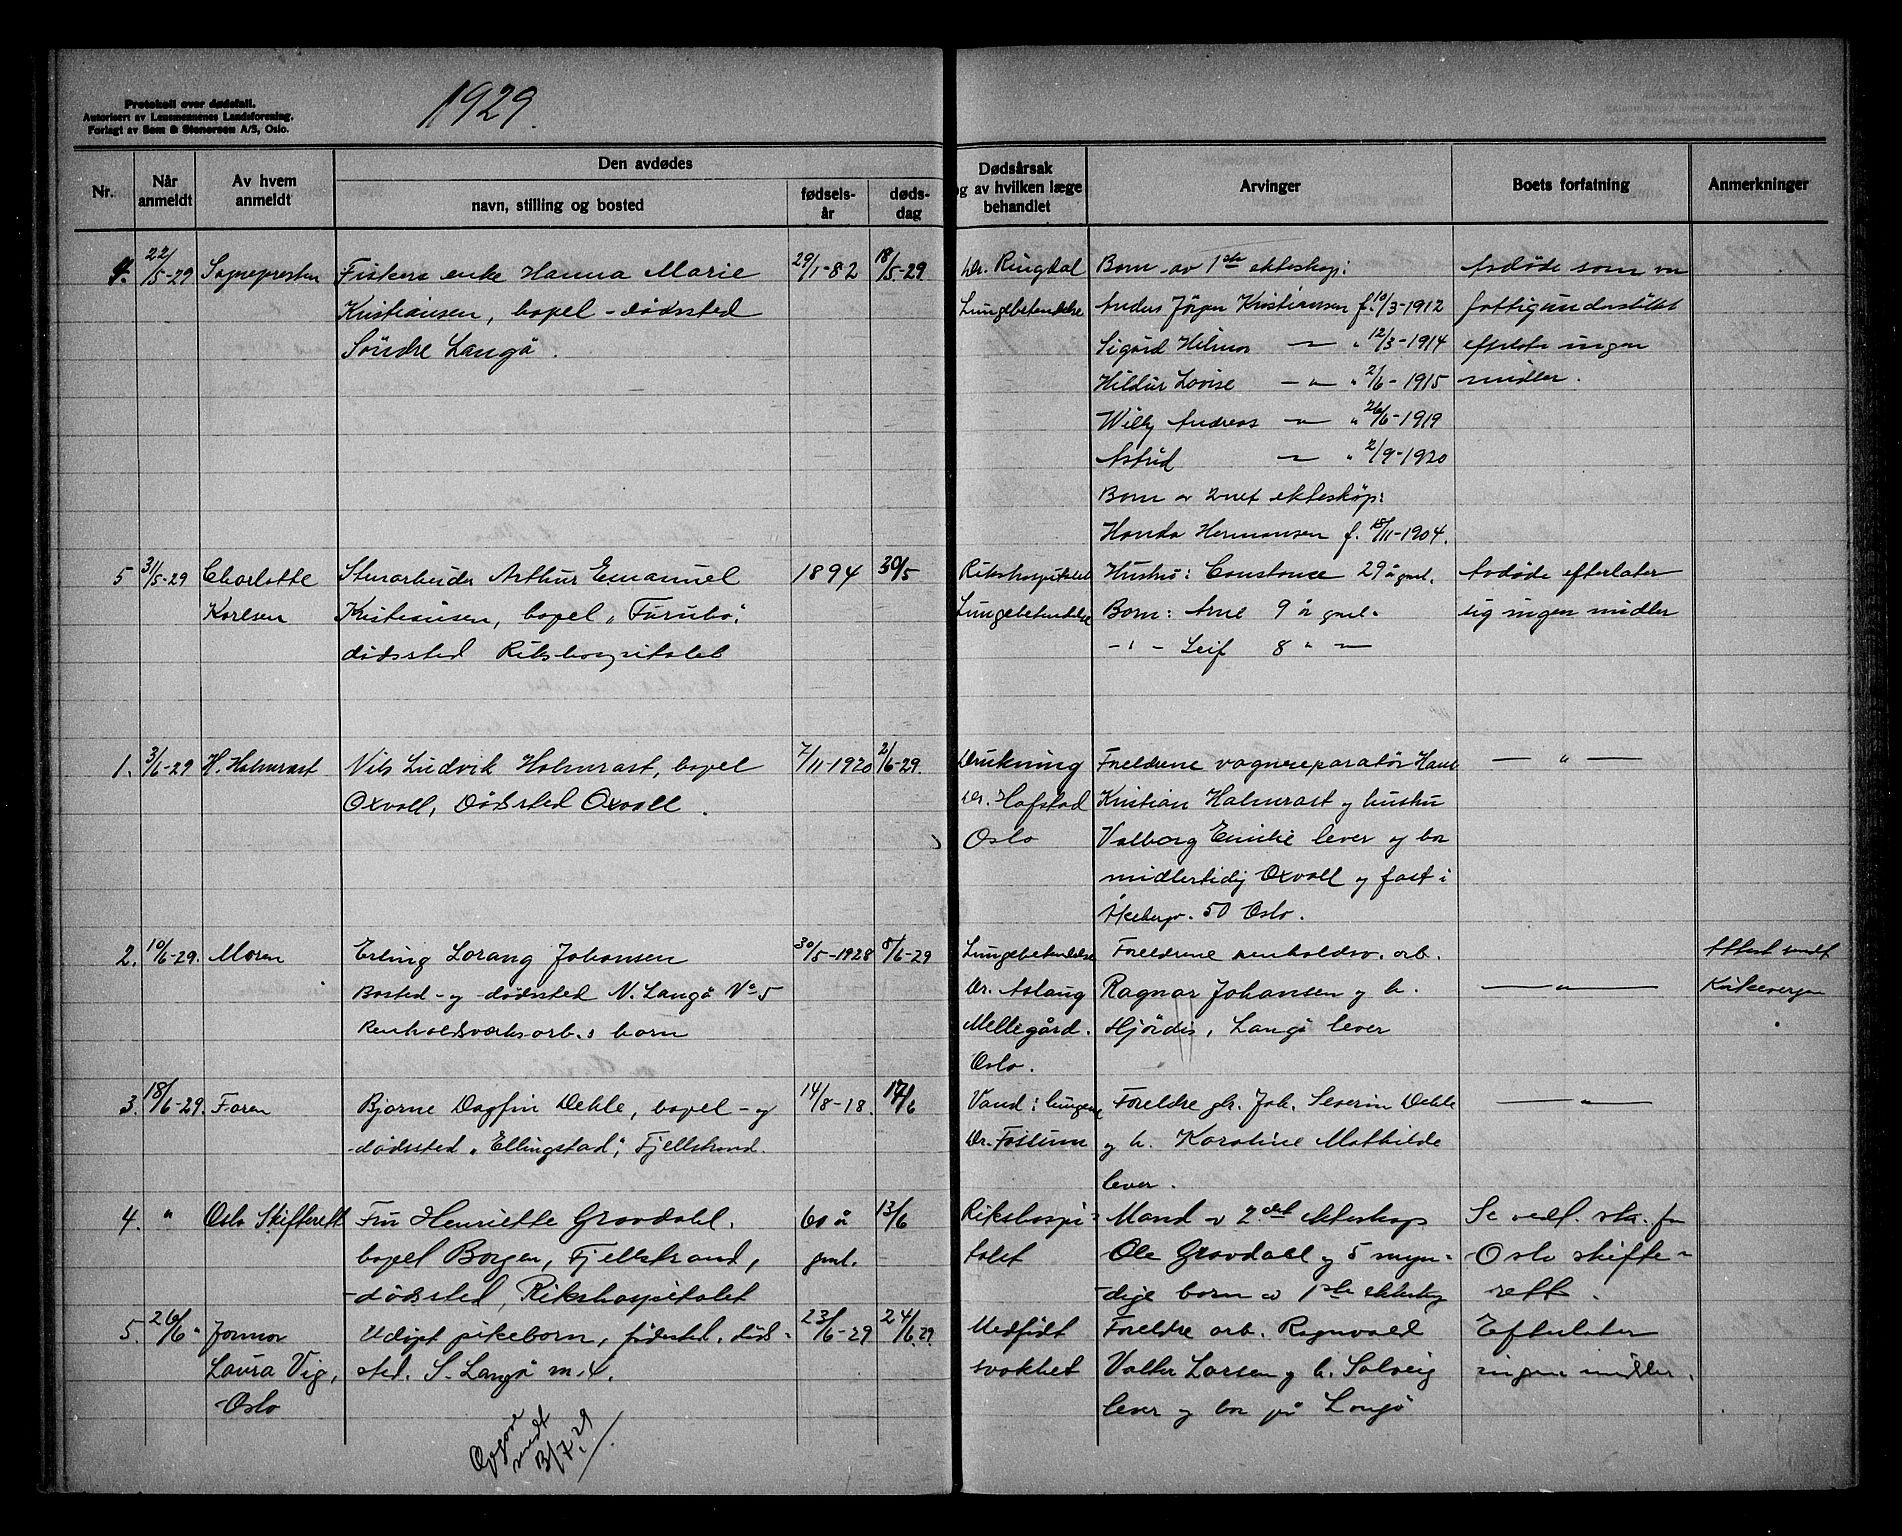 Protokoll over dødsfall.
Autorisert av Lensmennenes Landsforening.
Forlagt av Sem & Stenersen A/S, Oslo.
1929.
Nr.
Når anmeldt
Av hvem anmeldt
Den avdødes
navn, stilling og bosted
fødsels-år
døds-dag
Dødsårsak og av hvilken læge behandlet
Arvinger
Boets forfatning
Anmerkninger
4. 22/5-29 Sognepresten Fiskers enke Hanna Marie 29/1-82 18/5-29 Dr. Ringdal Born av 1ste ekteskap: Avdøde som var
Kristiansen, bopel - dødssted Lungebetendelse Anders Jörgen Kristiansen f. 10/3-1912 fattigunderstöttet
Söndre Langö. Sigurd Hilmar — " — " 12/3-1914 efterlot ingen
Hildur Lovise — " — " 2/6-1915 midler.
Willy Andreas — " — " 26/6-1919
Astrid — " — " 2/9-1920
Born av 2net ekteskap:
Handa Hermansen f. 18/11-1904.
5 31/5-29 Charlotte Stenarbeider Arthur Emanuel 1894 30/5 Rikshospitalet Hustru: Constance 29 år gml. Avdøde efterlater
Karlsen Kristiansen, bopel „Furubo". Lungebetendelse Born: Arne 9 år gml. sig ingen midler
dødssted Rikshospitalet - " - Leif 8 " —
1. 3/6-29 H. Halmrast Nils Ludvik Halmrast, bopel 7/11-1920 2/6-29. Drukning Foreldrene vognreparatör Hans — " —
Oxvall, Dødssted Oxvoll. Dr. Hafstad Kristian Halmrast og hustru
Oslo Valborg Emilie lever og bor
midlertidig Oxvall og fast i
Åkebergv. 50 Oslo.
2. 10/6-29. Moren Erling Lorang Johansen 30/5-1928 8/6-29 Lungebetendelse Foreldrene renholdsv. arb. Attest sendt
Bosted - og dødssted N. Langö No 5 Dr. Aslaug Ragnar Johansen og h. — " — Kirkevergen
Renholdsverksarb.s barn Mellegård. Hjördis, Langö lever
Oslo.
3. 18/6-29. Faren Bjarne Dagfin Dehle, bopel - og 14/8-18. 17/6 Vand i lungene Foreldre gbr. Joh. Severin Dehle — " —
dødssted „Ellingstad", Fjellstrand. Dr. Fossum og h. Karoline Mathilde
lever.
4. " Oslo Skifterett Fru Henriette Gravdahl. 60 år 13/6 Rikshospi- Mand av 2det ekteskap Se vedl. skr. fra
bopel Borgen, Fjellstrand, gml. talet Ole Gravdahl og 5 myn- Oslo skifte-
dødssted, Rikshospitalet dige born av 1ste ekteskap rett.
5. 26/6 " Jormor Udøpt pikeborn, fødested, døds- 23/6-29 24/6 29. Medfödt Foreldre arb. Ragnvald Efterlater
Laura Vig, sted. S. Langö m. 4. svakhet Valter Larsen og h. Solveig ingen midler.
Oslo lever og bor på Langö
Opgave
sendt
3/7. 29